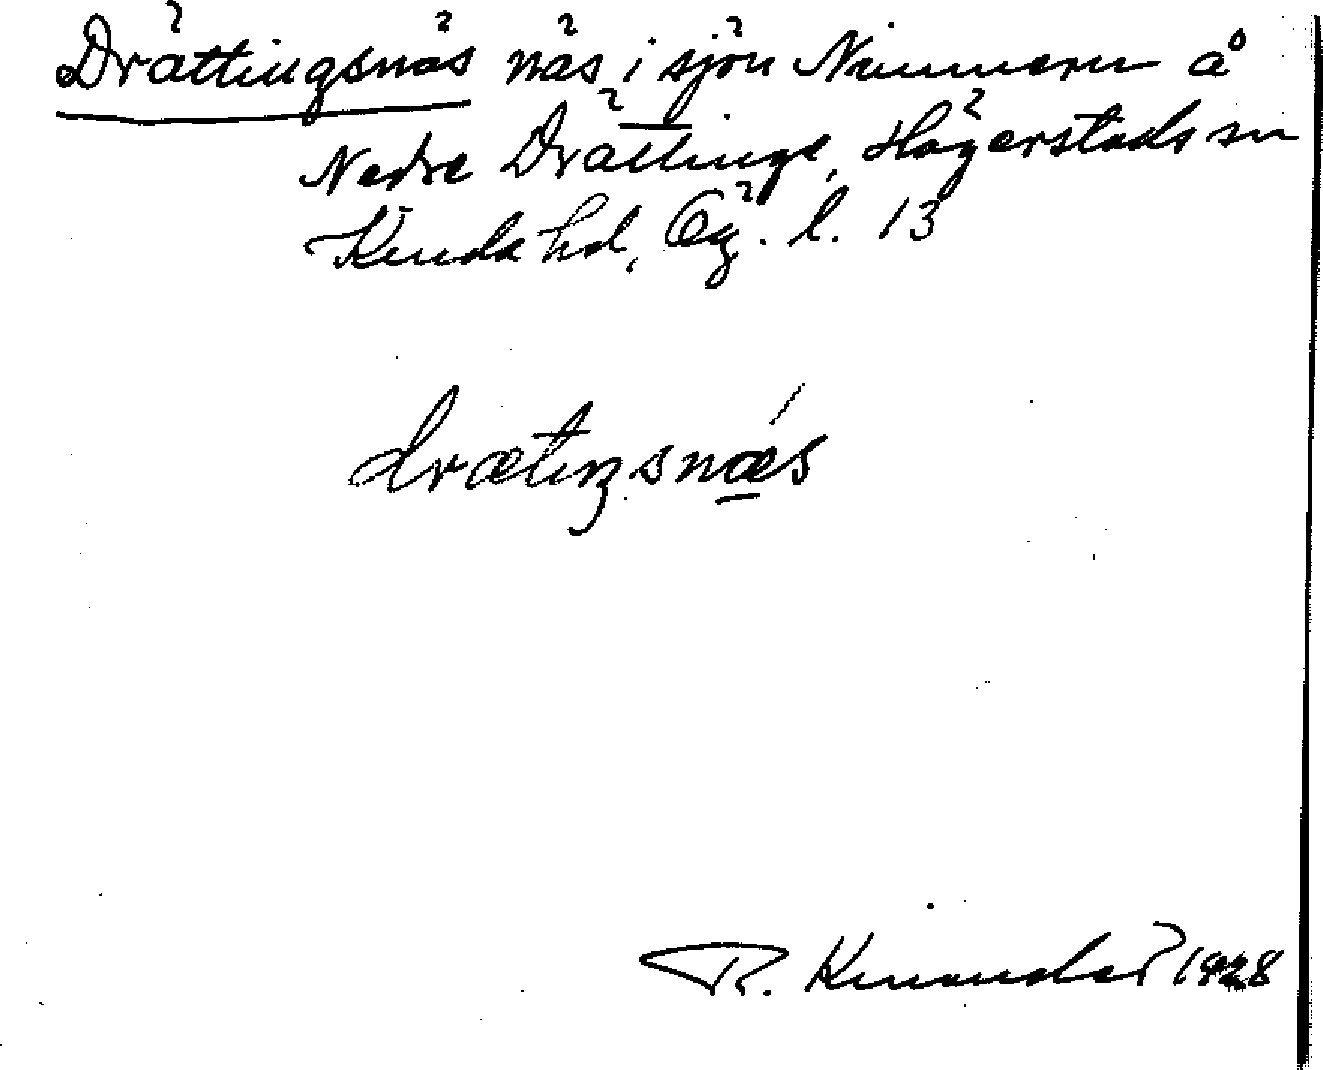 Drättingsnäs näs i sjön Nimmern å
Nedre Drättinge, Hägerstads sn
Kinda hd, Ög. l. 13
drætiŋsnǽ̠s
R. Kinander 1928